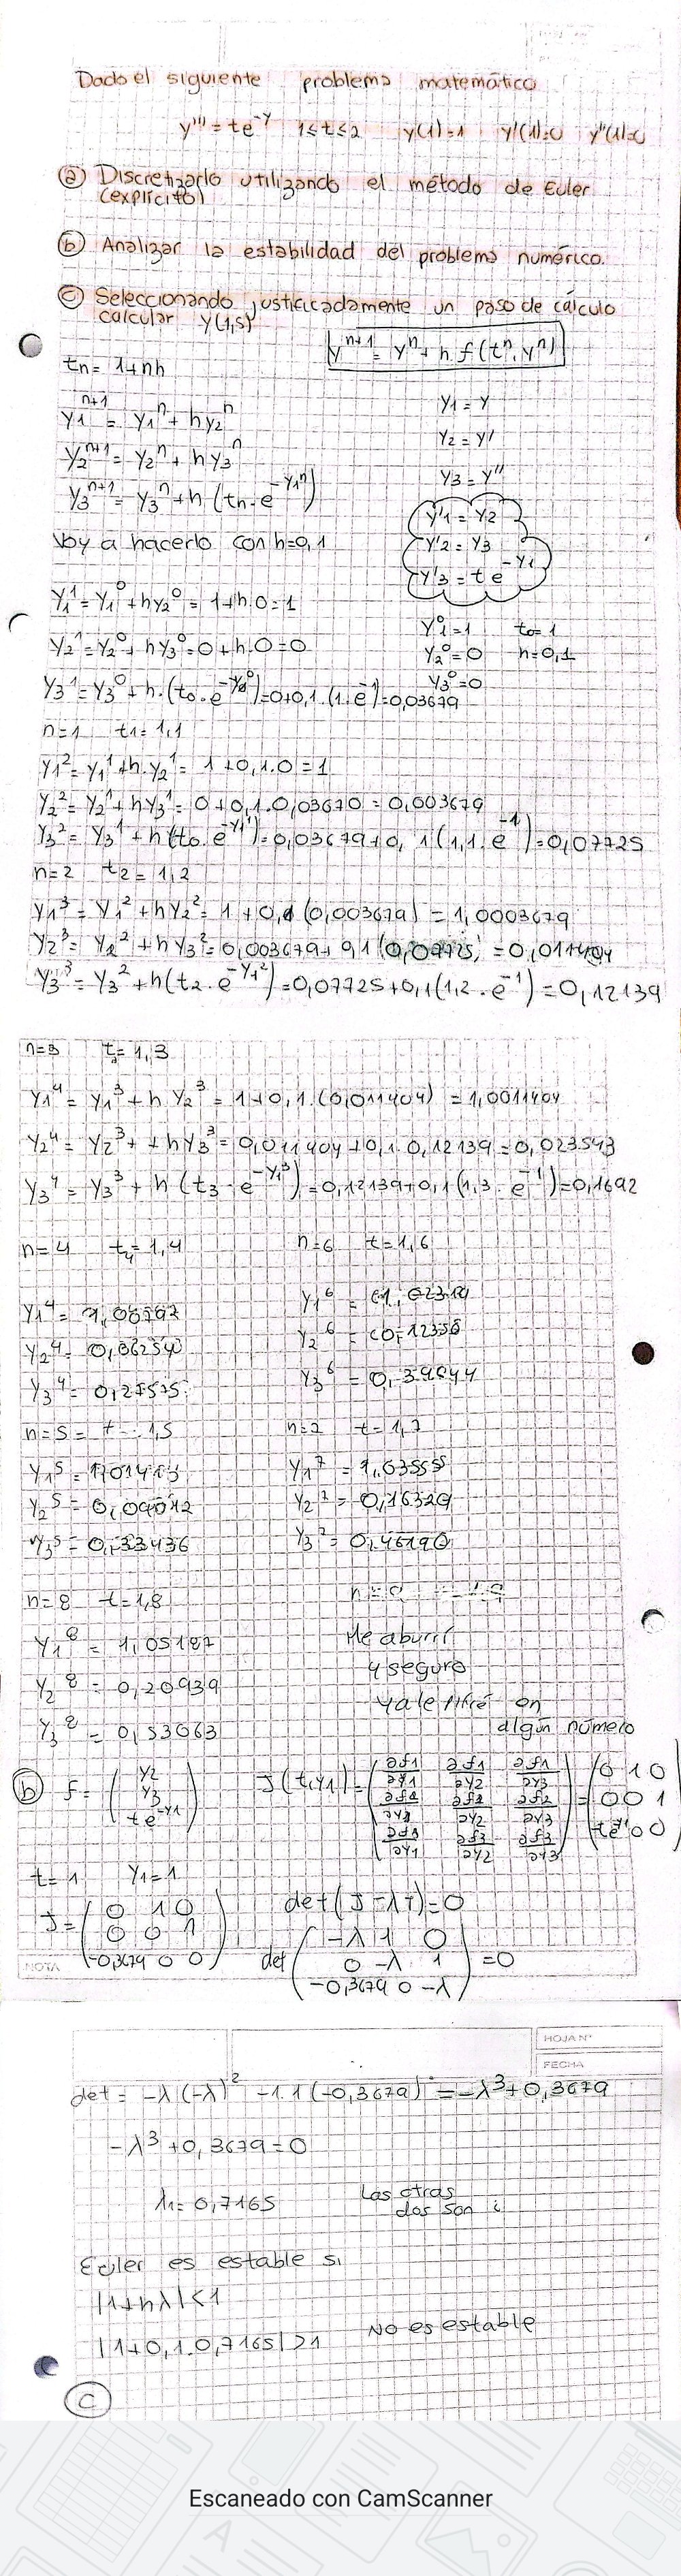 Dado el siguiente problema matemático
y''' = te^-y 1≤t≤2 y(1)=1 y'(1)=0 y''(1)=0
(a) Discretizarlo utilizando el método de Euler
(explícito)
(b) Analizar la estabilidad del problema numérico.
(c) Seleccionando justificadamente un paso de cálculo
calcular y(1,5)
y^n+1 = y^n + h.f(t^n, y^n)
tn = 1+nh
y1^n+1 = y1^n + h y2^n
y2^n+1 = y2^n + h y3^n
y3^n+1 = y3^n + h (tn. e^-y1^n)
y1 = y
y2 = y'
y3 = y''
y'1 = y2
y'2 = y3
y'3 = t e^-y1
Voy a hacerlo con h=0,1
y1^0=1 t0=1
y2^0=0 h=0,1
y3^0=0
y1^1 = y1^0 + h y2^0 = 1+h.0=1
y2^1 = y2^0 + h y3^0 = 0+h.0=0
y3^1 = y3^0 + h.(t0.e^-y1^0)=0+0,1.(1.e^-1)=0,03679
n=1 t1=1,1
y1^2 = y1^1 + h.y2^1 = 1+0,1.0=1
y2^2 = y2^1 + h y3^1 = 0+0,1.0,03670=0,003679
y3^2 = y3^1 + h(t0.e^-y1^1)=0,03679+0,1(1,1.e^-1)=0,07725
n=2 t2=1,2
y1^3 = y1^2 + h y2^2 = 1+0,1(0,003679)=1,0003679
y2^3 = y2^2 + h y3^2 = 0,003679+0,1(0,07725)=0,011404
y3^3 = y3^2 + h(t2.e^-y1^2)=0,07725+0,1(1,2.e^-1)=0,12139
n=3 t3=1,3
y1^4 = y1^3 + h y2^3 = 1+0,1.(0,011404)=1,0011404
y2^4 = y2^3 + + h y3^3 = 0,011404+0,1.0,12139=0,023543
y3^4 = y3^3 + h (t3.e^-y1^3)=0,12139+0,1(1,3.e^-1)=0,1692
n=4 t4=1,4
y2^4 = 0,06254
y3^4 = 0,27575
n=5 = t = 1,5
y2^5 = 0,09012
y3^5 = 0,33436
n=6 t=1,6
y1^6 = 1,02314
y2^6 = 0,12356
y3^6 = 0,39644
n=7 t=1,7
y1^7 = 1,03555
y2^7 = 0,16329
y3^7 = 0,46190
n=8 t=1,8
y1^8 = 1,05187
y2^8 = 0,20939
y3^8 = 0,53063
Me aburrí
y seguro
ya le pifié en
algún número
(b) f = (y2 y3 te^-y1)
J(t,y1) = (∂f1/∂y1 ∂f1/∂y2 ∂f1/∂y3
∂f2/∂y1 ∂f2/∂y2 ∂f2/∂y3
∂f3/∂y1 ∂f3/∂y2 ∂f3/∂y3)
= (0 1 0
0 0 1
-te^-y1 0 0)
t=1 y1=1
J = (0 1 0
0 0 1
-0,3679 0 0)
det(J-λI)=0
det (-λ 1 0
0 -λ 1
-0,3679 0 -λ) = 0
NOTA
HOJA Nº
FECHA
det = -λ(-λ)^2 -1.1(-0,3679) = -λ^3+0,3679
-λ^3+0,3679=0
λ1=0,7165
Las otras
dos son i
Euler es estable si
|1+hλ|<1
|1+0,1.0,7165|>1 No es estable
(c)
Escaneado con CamScanner